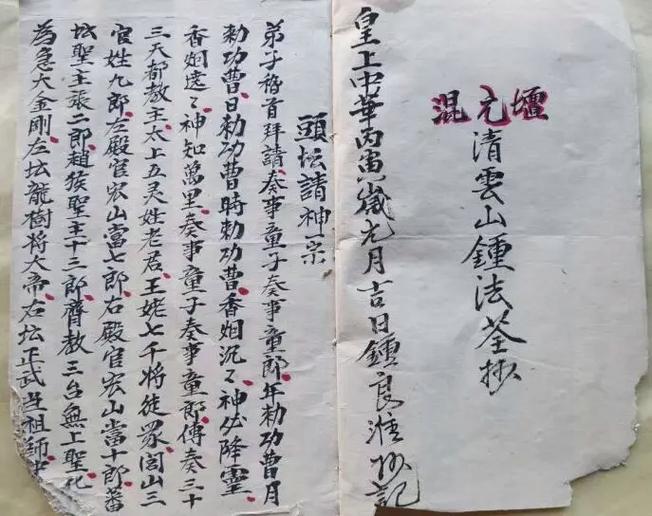 混元壇
清雲山鍾法荃抄
皇上中華丙寅歲元月吉日鍾良淮抄記
頭坛請神宗
弟子稽首拜請奏事童子奏事童郎年勅功曹月
勅功曹日勅功曹時勅功曹香烟沉々神必降靈
香烟遠々神知萬里奏事童子奏事童郎傳奏三十
三天都教主太上五灵姓老君王姥七千將徒眾閭山三
官姓九郎左殿官宏山當七郎右殿官宏山當十郎蕃
坛聖主張二郎趙猴聖主十三郎齊教三台無上聖化
為急大金剛左坛龍樹將大帝右坛正武生祖師